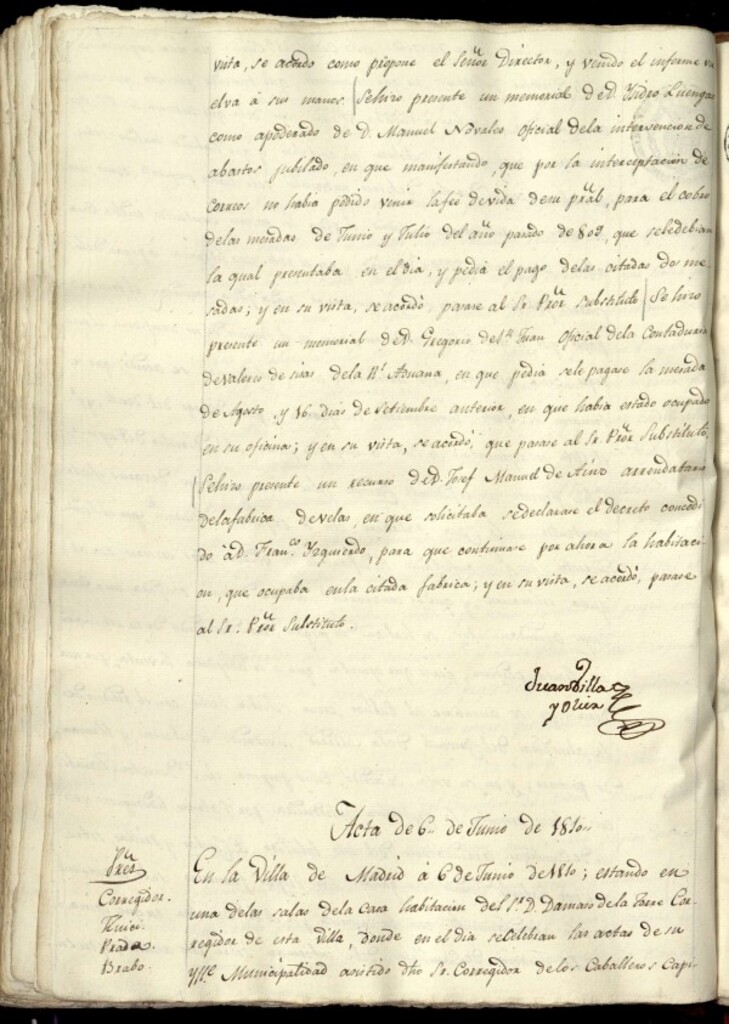 vista, se acordo como propone el Señor Director, y venido el informe vu
elva à sus manos. Sehizo presente un memorial de D. Isidro Luengas
como apoderado de D. Manuel Novales oficial dela intervencion de
abastos jubilado, en que manifestando, que por la interceptacion de
correos no habia podido venir lafeé de vida desu pral, para el cobro
delas mesadas de Junio y Julio del año pasado de 809, que seledebian
la qual presentaba en el dia, y pedia el pago delas citadas dos me-
sadas; y en su vista, se acordó, pasase al Sr. Pror Substituto. Se hizo
presente un memorial de D. Gregorio de Sn. Juan Oficial dela Contaduria
de valores de sisas dela Rl. Aduana, en que pedia sele pagase la mesada
de Agosto, y 16. dias de Setiembre anterior, en que habia estado ocupado
en su oficina; y en su vista, se acordó, que pasase al Sr. Pror Substituto.
Sehizo presente un recurso de D. Josef Manuel de arrendatario
delafabrica de velas, en que solicitaba sedeclarase el decreto concedi
do à D. Franco. Yzquierdo, para que continuase por ahora la habitaci-
on, que ocupaba enla citada fabrica; y en su vista, se acordó, pasase
al Sr. Pror Substituto.
Juan Villa
y Olier
Acta de 6 de Junio de 1810
Sres
Corregidor.
Prada.
Brabo.
En la Villa de Madrid à 6 de Junio de 1810; estando en
una delas salas dela casa habitacion del Sr. D. Damaso dela Torre Cor-
regidor de esta Villa, donde en el dia secelebran las actas de su
Ylle. Municipalidad asistido dho Sr. Corregidor delos Caballeros Capi-